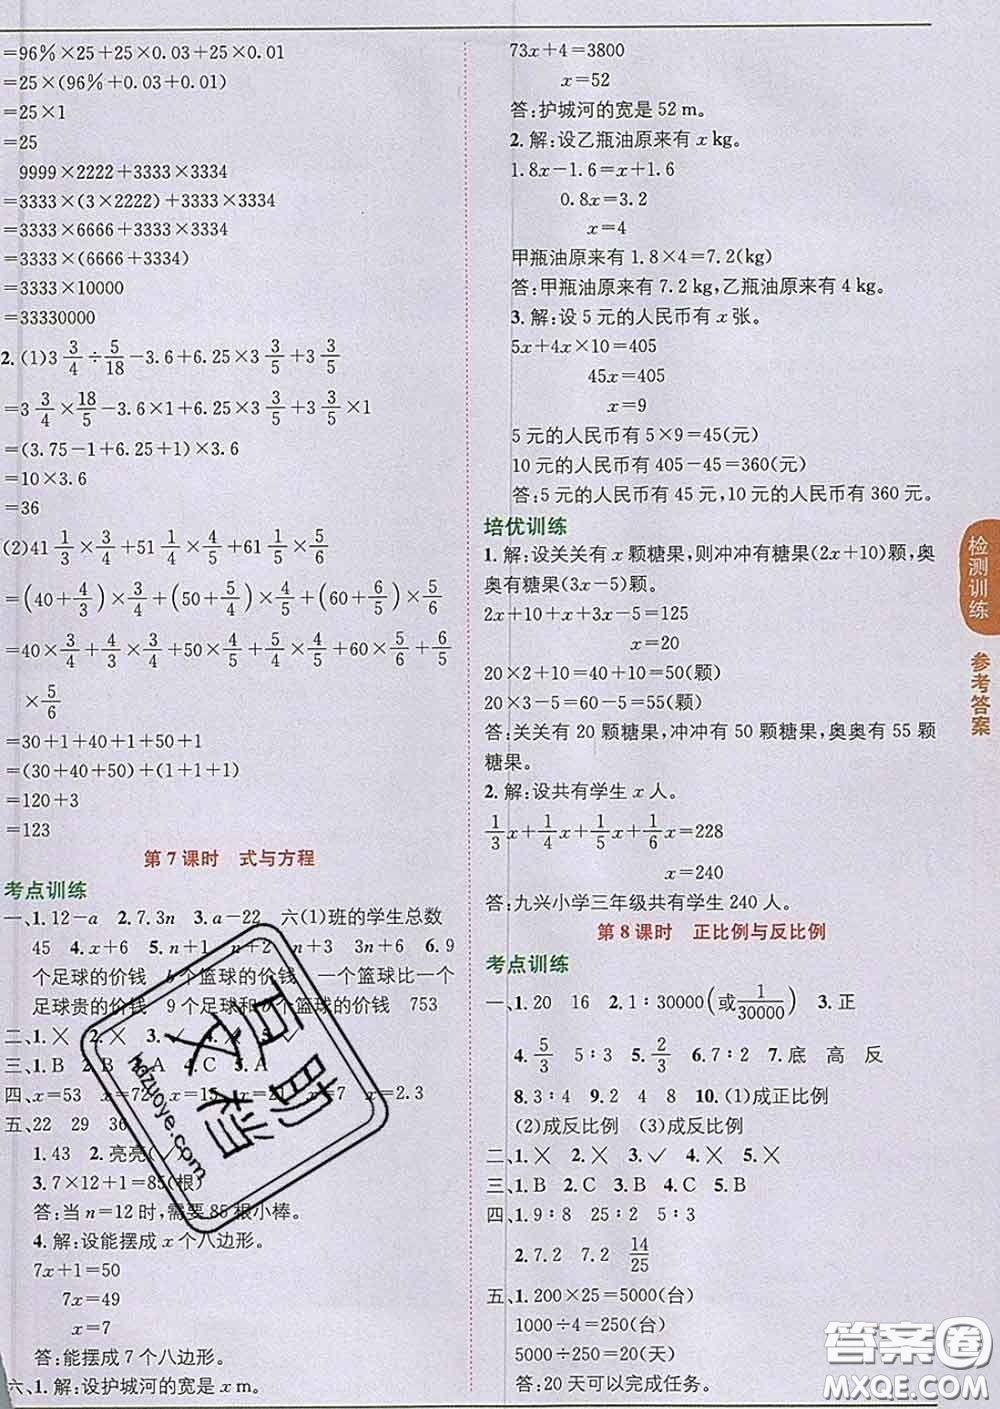 =96%×25+25×0.03+25×0.01
=25×(96%+0.03+0.01)
=25×1
=25
9999×2222+3333×3334
=3333×(3×2222)+3333×3334
=3333×6666+3333×3334
=3333×(6666+3334)
=3333×10000
=33330000
2.(1)3 3/4÷5/18-3.6+6.25×3 3/5+3 3/5
=3 3/4×18/5-3.6×1+6.25×3 3/5+3 3/5×1
=(3.75-1+6.25+1)×3.6
=10×3.6
=36
(2)41 1/3×3/4+51 1/4×4/5+61 1/5×5/6
=(40+4/3)×3/4+(50+5/4)×4/5+(60+6/5)×5/6
=40×3/4+4/3×3/4+50×4/5+5/4×4/5+60×5/6+6/5
×5/6
=30+1+40+1+50+1
=(30+40+50)+(1+1+1)
=120+3
=123
第7课时 式与方程
考点训练
一、1.12-a 2.7.3n 3.a-22 六(1)班的学生总数
45 4.x+6 5.n+1 n+2 n+3 6.9
个足球的价钱 b个篮球的价钱 一个篮球比一个
足球贵的价钱 9个足球和b个篮球的价钱 753
二、1.× 2.× 3.× 4.× 5.
三、1.B 2.B 3.A 4.C 5.C
四、x=53 x=72 x=27 x=7 x=2.3
五、22 29 36
1.43 2.亮亮(√)
3.7×12+1=85(根)
答:当n=12时,需要85根小棒。
4.解:设能摆成x个八边形。
7x+1=50
7x=49
x=7
答:能摆成7个八边形。
六、1.解:设护城河的宽是x m。
73x+4=3800
x=52
答:护城河的宽是52 m。
2.解:设乙瓶油原来有x kg。
1.8x-1.6=x+1.6
0.8x=3.2
x=4
甲瓶油原来有1.8×4=7.2(kg)
答:甲瓶油原来有7.2 kg,乙瓶油原来有4 kg。
3.解:设5元的人民币有x张。
5x+4x×10=405
45x=405
x=9
5元的人民币有5×9=45(元)
10元的人民币有405-45=360(元)
答:5元的人民币有45元,10元的人民币有360元。
培优训练
1.解:设关关有x颗糖果,则冲冲有糖果(2x+10)颗,奥
奥有糖果(3x-5)颗。
2x+10+x+3x-5=125
x=20
20×2+10=40+10=50(颗)
20×3-5=60-5=55(颗)
答:关关有20颗糖果,冲冲有50颗糖果,奥奥有55颗
糖果。
2.解:设共有学生x人。
1/3x+1/4x+1/5x+1/6x=228
x=240
答:九兴小学三年级共有学生240人。
第8课时 正比例与反比例
考点训练
一、1.20 16 2.1:30000(或1/30000) 3.正
4.5/3 5:3 5.2/3 6.7:2 7.底 高 反
8.3:4 9.2 4 8 10.(1)成正比例
(2)成反比例 (3)成反比例
二、1.× 2.× 3.√ 4.× 5.×
三、1.B 2.C 3.B 4.C 5.B
四、1.9:8 25:2 5:3
2.7.2 7.2 14/25
五、1.200×25=5000(台)
1000÷4=250(台)
5000÷250=20(天)
答:20天可以完成任务。
检测训练
参考答案
互助文档
hdzuoye.com
答案圈
MXQE.COM